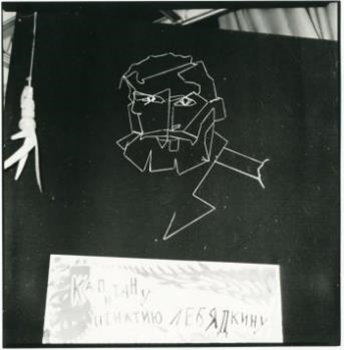 КАПИТАНУ
ИГНАТИЮ ЛЕБЯДКИНУ